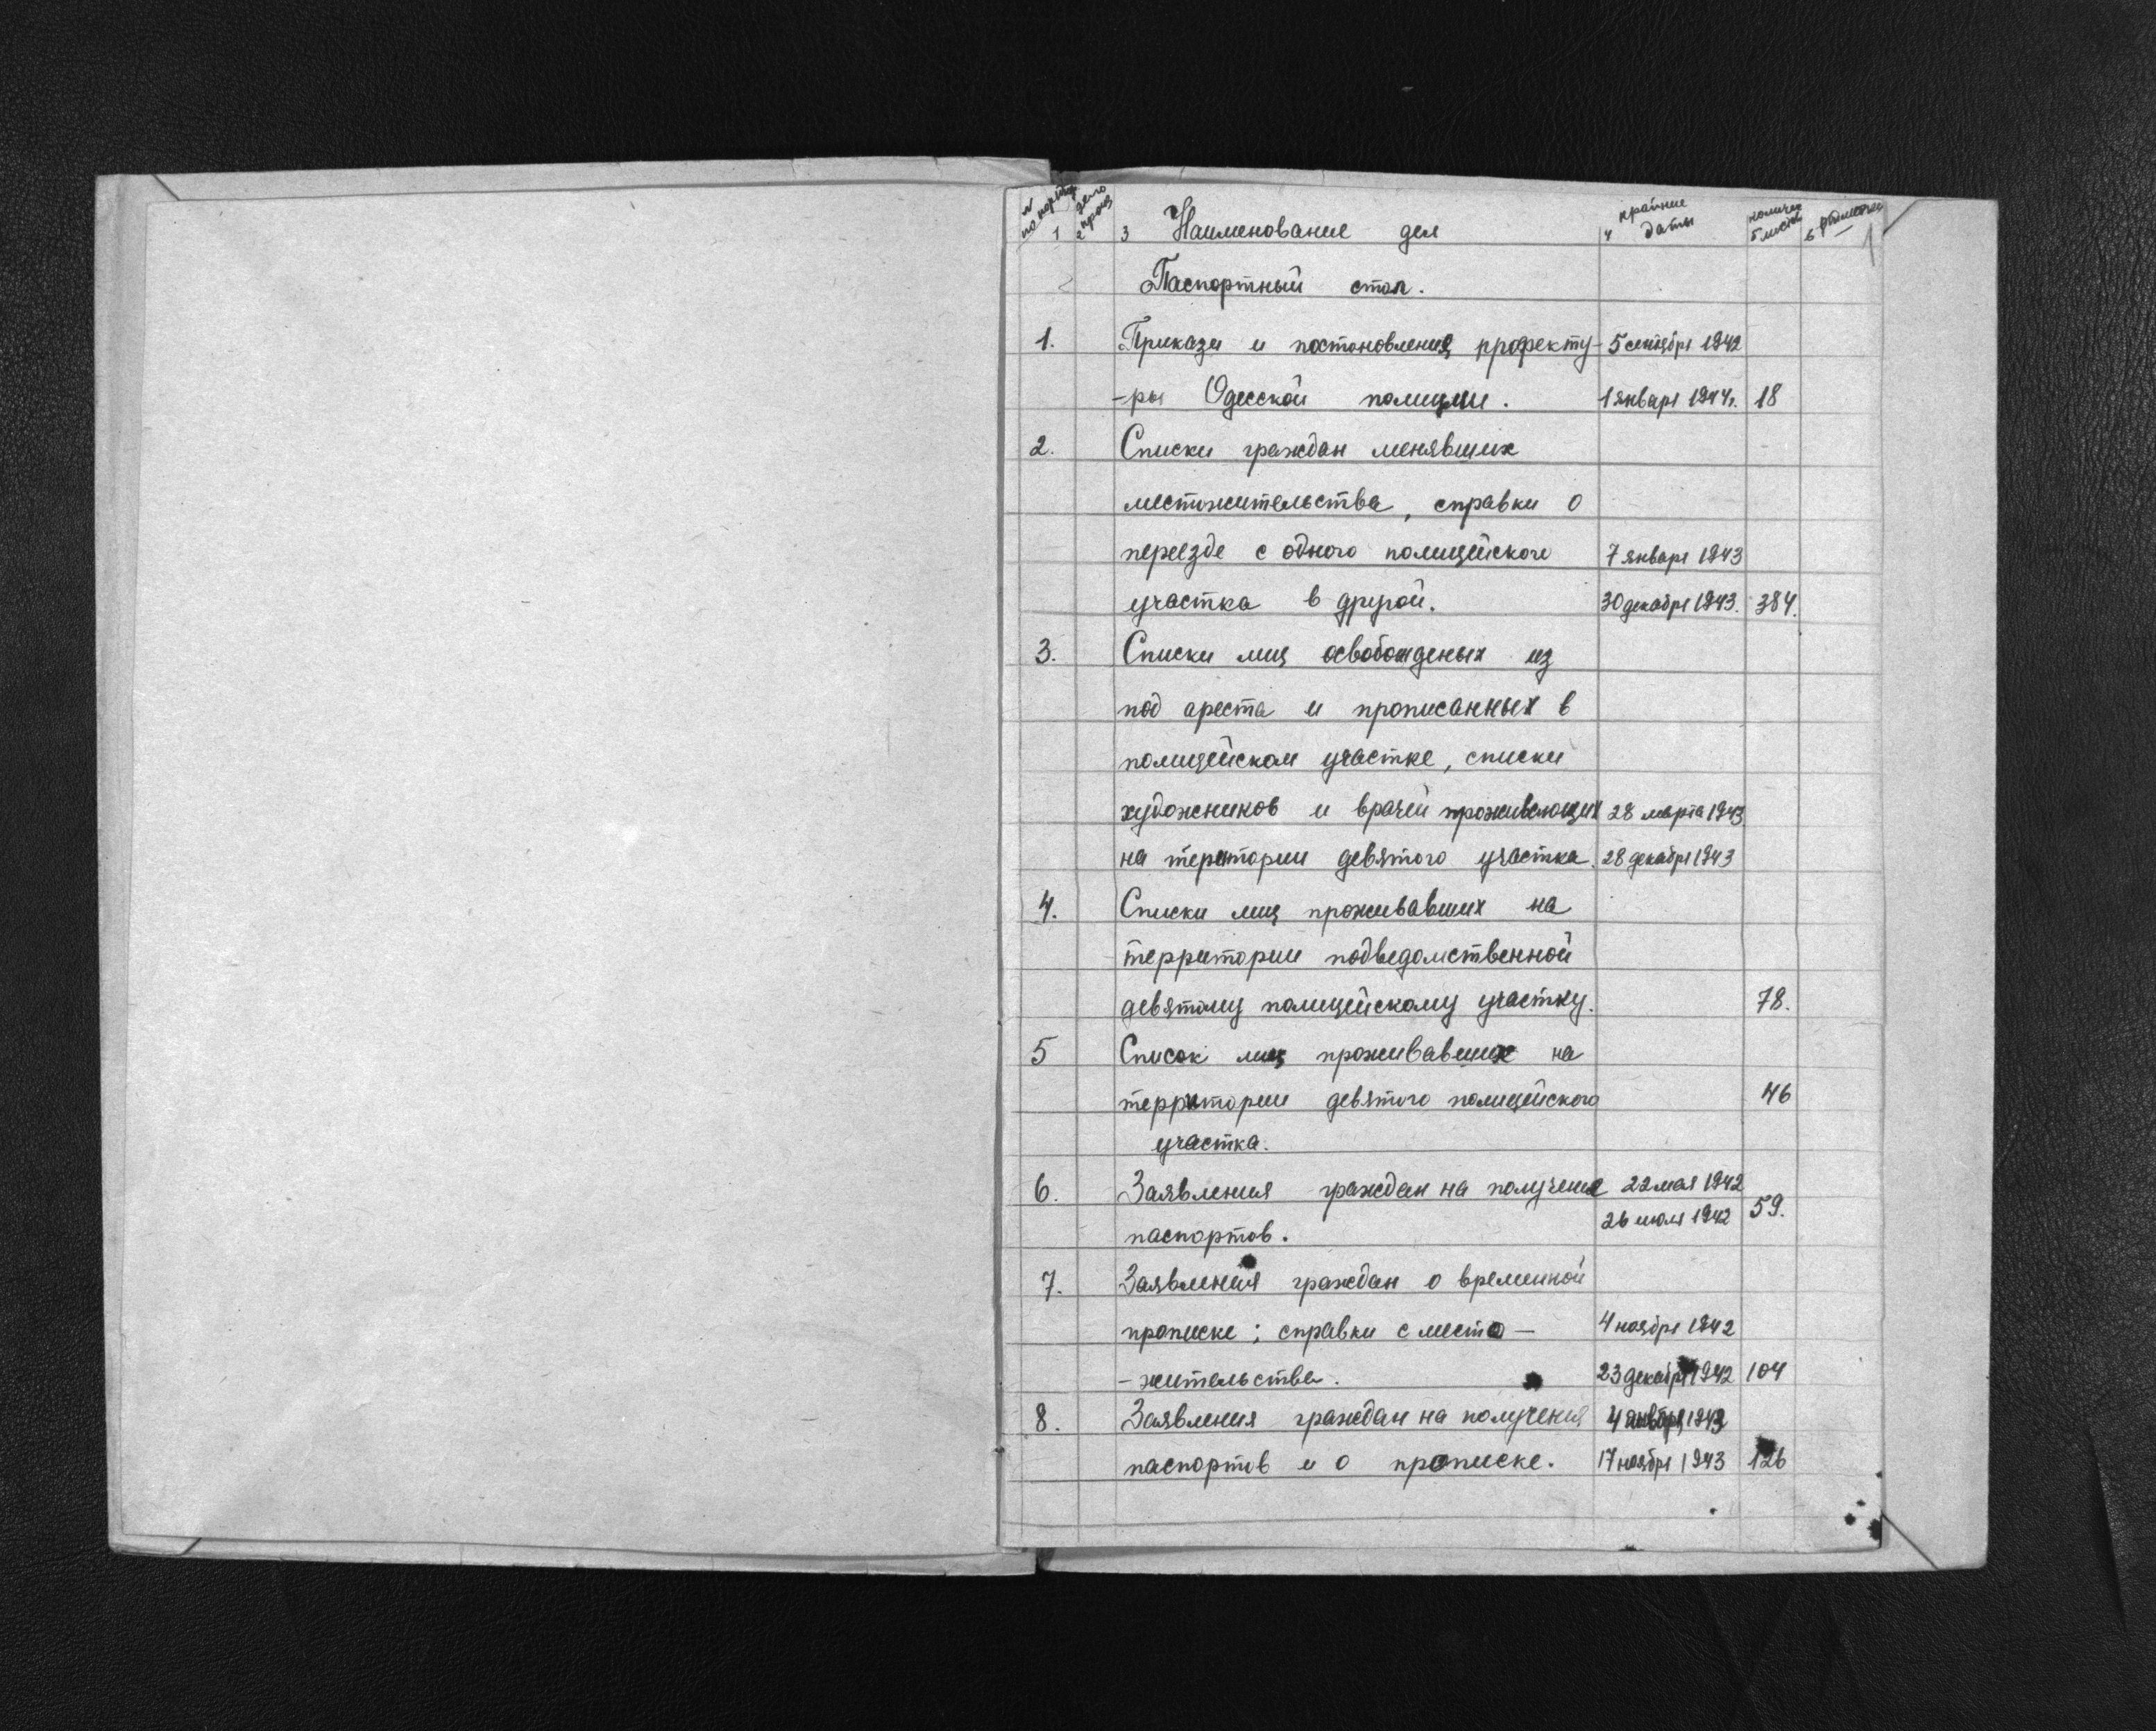 N по порядку 1 2 дело произ 3 Наименование дел 4 крайние даты 5 количес листов 6 1
Паспортный стол.
1. Прикази и постановления префекту- 5 сентября 1942
-ры Одесской полиции. 1 января 1944г. 18
2. Списки граждан менявших
местожительства, справки о
переезде с одного полицейского 7 января 1943
участка в другой. 30 декабря 1943. 384.
3. Списки лиц освобожденых из
под ареста и прописанных в
полицейском участке, списки
художников и врачей проживающих 28 марта 1943
на територии девятого участка. 28 декабря 1943
4. Списки лиц проживавших на
территории подведомственной
девятому полицейскому участку. 78.
5 Список лиц проживавших на
территории девятого полицейского 46
участка.
6. Заявления граждан на получение 22 мая 1942
паспортов. 26 июля 1942 59.
7. Заявления граждан о временной
прописке; справки с место – 4 ноября 1942
– жительства. 23 декабря 1942 104
8. Заявления граждан на получения 4 января 1943
паспортов и о прописке. 17 ноября 1943 126